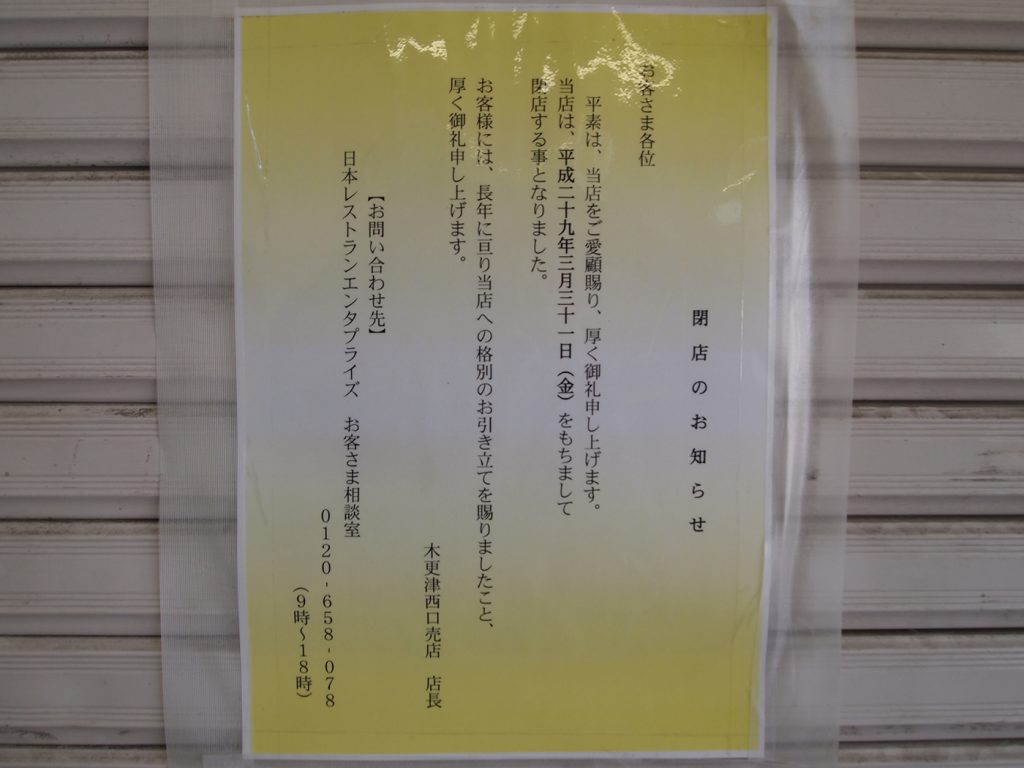 閉店のお知らせ
お客さま各位
平素は、当店をご愛顧賜り、厚く御礼申し上げます。
当店は、平成二十九年三月三十一日（金）をもちまして
閉店する事となりました。
お客様には、長年に亘り当店への格別のお引き立てを賜りましたこと、
厚く御礼申し上げます。
木更津西口売店　店長
【お問い合わせ先】
日本レストランエンタプライズ　お客さま相談室
0120-658-078
（9時～18時）